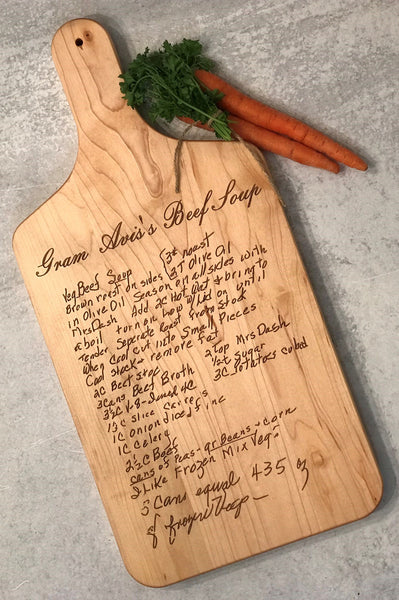 Gram Avis's Beef Soup
Veg Beef Soup 3# roast
Brown roast on sides 2T Olive Oil
in Olive Oil Season on all sides with
Mrs Dash Add 2C Hot Wat & bring to
a boil turn on low w/ lid on until
tender Seperate Roast From Stock
When Cool Cut into Small Pieces
Cool Stock - remove Fat
2C Beef Stock 2 tsp Mrs Dash
3 Cans Beef Broth Sugar
3½C V-8 3C Potatoes Cubed
1½C Slice Carrots
1C Onion diced fine
1C Celery
2½C Beef
cans of Peas - gr Beans - Corn
I Like Frozen Mix Veg
3 Cans equal 435 g
of frozen Veg